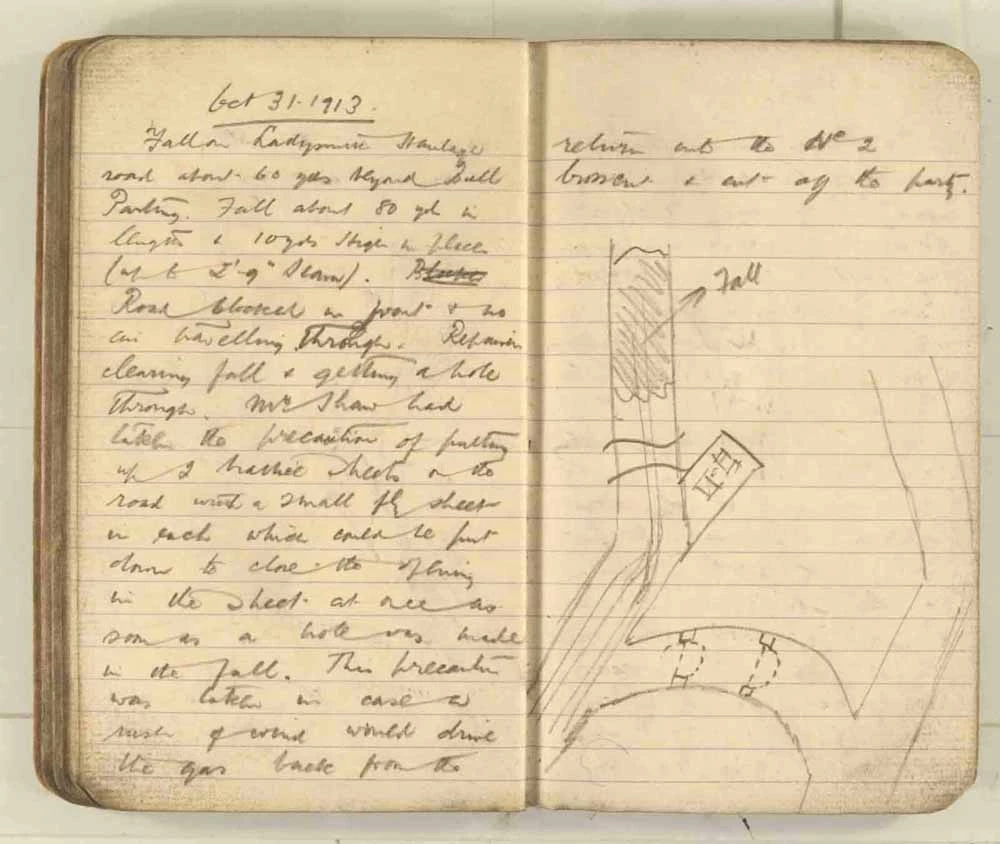 Oct 31. 1913.
Fall on Ladysmith Haulage
road about 60 yds beyond Bull
Parting. Fall about 80 yds in
length & 10 yds high in place
(up to 2'-9" Seam).
Road blocked in front & no
air travelling through. Repairers
clearing fall & getting a hole
through. Mr Shaw had
taken the precaution of putting
up 2 brattice sheets on the
road with a small fly sheet
in each which could be put
down to close the opening
in the sheet at once as
soon as a hole was made
in the fall. This precaution
was taken in case a
rush of wind would drive
the gas back from the
return into the No 2
& cut off the party.
Fall